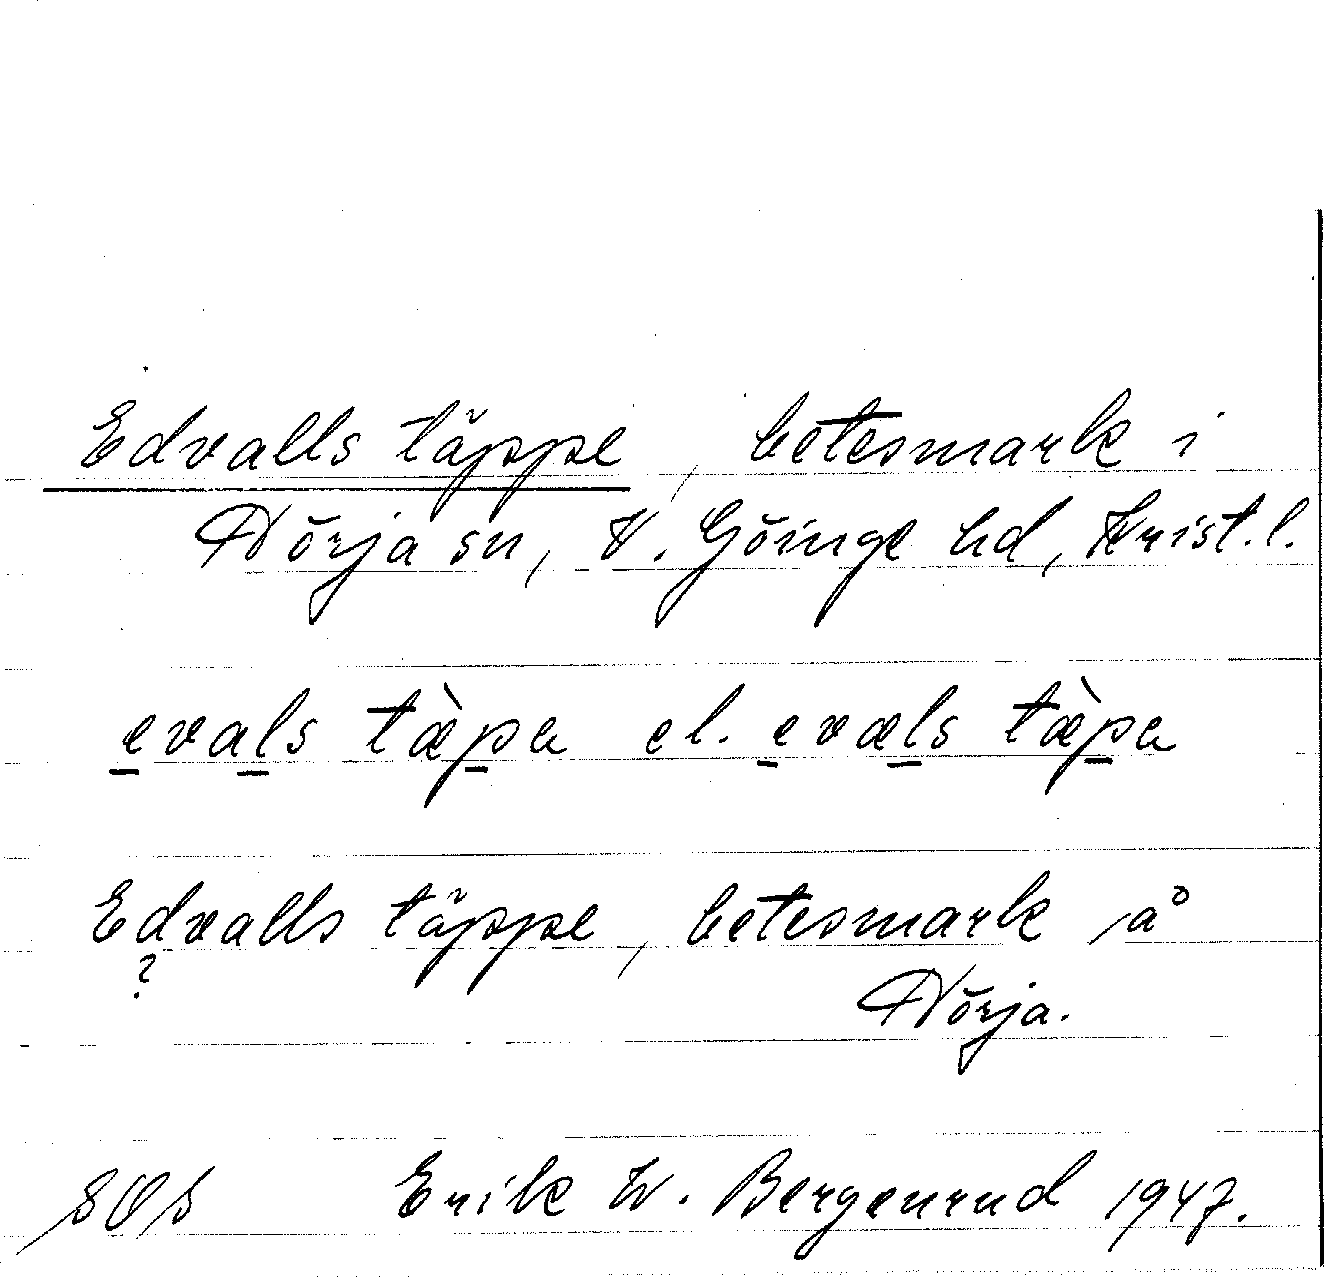 Edvalls täppe, betesmark i
Nörja sn, V. Göinge hd, Krist. l.
evals tæ̀pa el. evæls tæ̀pa
Edvalls täppe, betesmark på
?
Nörja.
SOS Erik W. Bergenrud 1947.